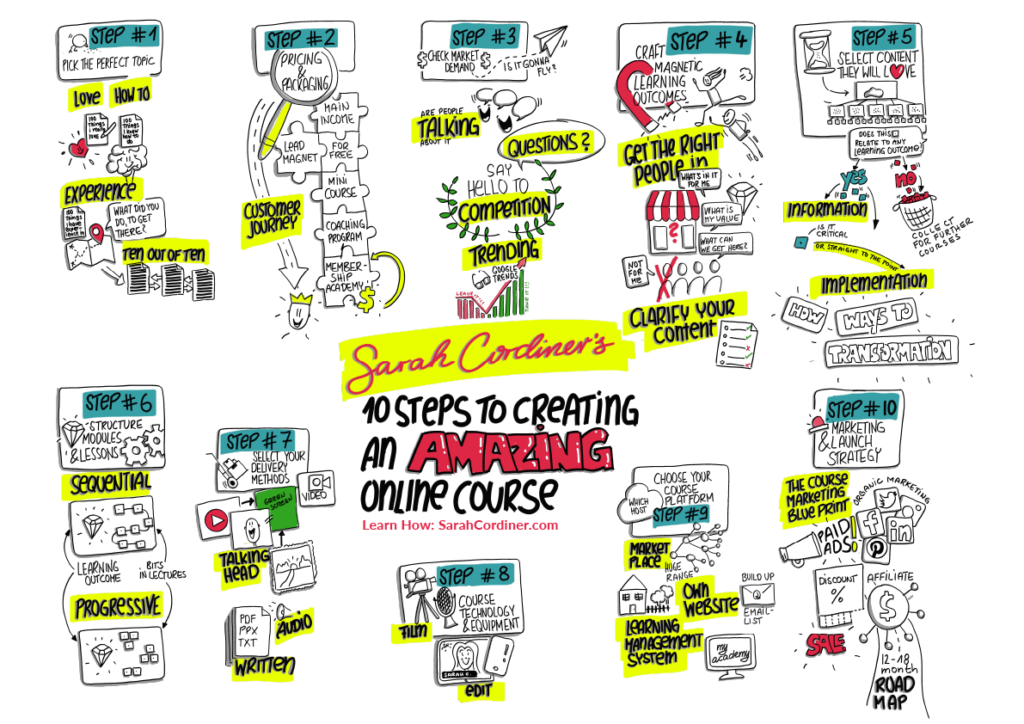 STEP #1
PICK THE PERFECT TOPIC
LOVE HOW TO
100 Things I really love
100 Things I know how to do
EXPERIENCE
WHAT DID YOU
DO, TO GET
THERE?
TEN OUT OF TEN
STEP #2
PRICING
&
PACKAGING
MAIN
INCOME
LEAD
MAGNET
FOR
FREE
MINI
COURSE
CUSTOMER
JOURNEY
COACHING
PROGRAM
MEMBER-
SHIP
ACADEMY
$
STEP #3
$ CHECK MARKET $
DEMAND
IS IT GONNA
FLY?
ARE PEOPLE
TALKING
ABOUT IT
QUESTIONS?
SAY
HELLO TO
COMPETITION
TRENDING
GOOGLE
TRENDS
LEAVE IT!!
STEP #4
CRAFT
MAGNETIC
LEARNING
OUTCOMES
GET THE RIGHT
PEOPLE IN
WHAT'S IN IT
FOR ME
WHAT IS
MY VALUE
?
WHAT CAN
WE GET HERE?
NOT
FOR
ME
CLARIFY YOUR
CONTENT
STEP #5
SELECT CONTENT
THEY WILL LOVE
DOES THIS
RELATE TO ANY
LEARNING OUTCOME?
YES
NO
INFORMATION
COLLECT
FOR FURTHER
COURSES
IS IT
CRITICAL
OR STRAIGHT TO THE POINT
IMPLEMENTATION
HOW
WAYS TO
TRANSFORMATION
Sarah Cordiner's
10 STEPS TO CREATING
AN AMAZING
ONLINE COURSE
Learn How: SarahCordiner.com
STEP #6
STRUCTURE
MODULES
& LESSONS
SEQUENTIAL
LEARNING
OUTCOME
BITS
IN LECTURES
PROGRESSIVE
STEP #7
SELECT YOUR
DELIVERY
METHODS
VIDEO
GREEN
SCREEN
TALKING
HEAD
PDF
PPX
TXT
AUDIO
WRITTEN
STEP #8
COURSE
TECHNOLOGY
& EQUIPMENT
FILM
SARAH C.
EDIT
CHOOSE YOUR
COURSE
PLATFORM
WHICH
HOST
STEP #9
MARKET
PLACE
HUGE
RANGE
OWN
WEBSITE
BUILD UP
EMAIL-
LIST
LEARNING
MANAGEMENT
SYSTEM
my
academy
STEP #10
MARKETING
& LAUNCH
STRATEGY
THE COURSE
MARKETING
BLUE PRINT
ORGANIC MARKETING
PAID
ADS!
f
in
DISCOUNT
%
AFFILIATE
$
SALE
12-18
month
ROAD
MAP